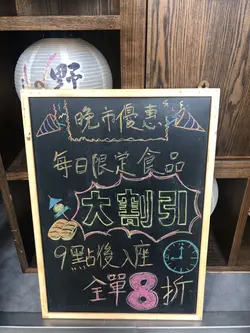 野
晚市優惠
每日限定食品
大割引
9點後入座
全單8折